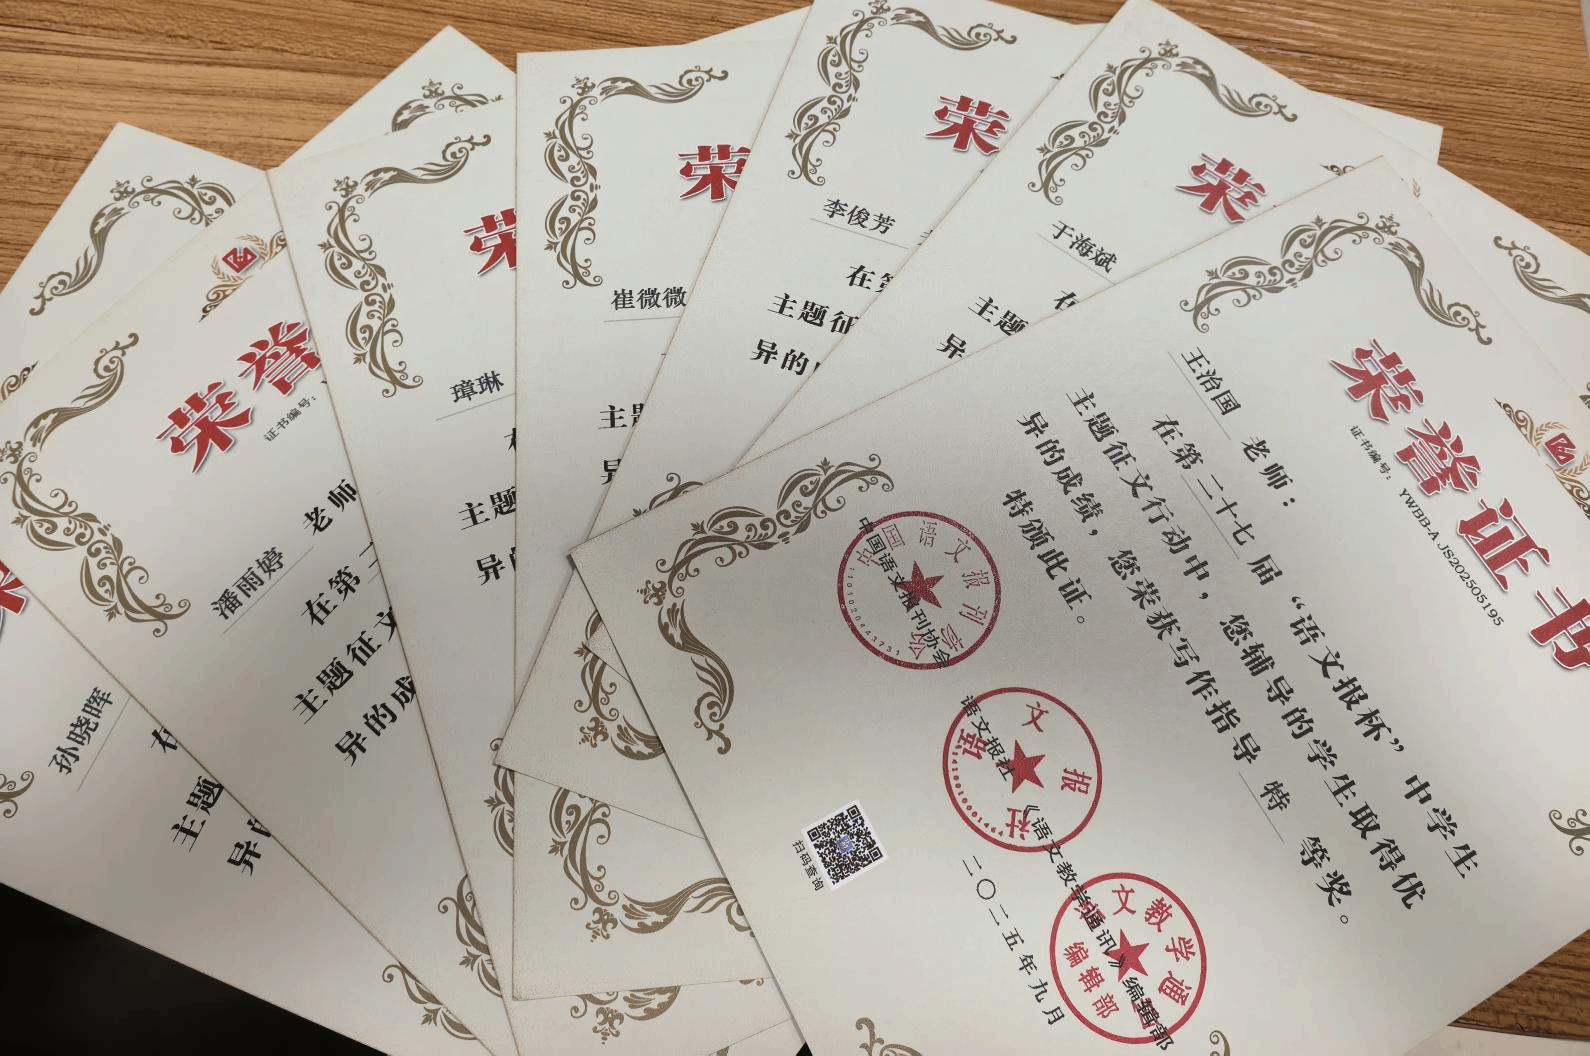 荣誉证书
证书编号： YWBB-A JS202505195
王治国 老师：
在第 二十七 届“语文报杯”中学生
主题征文行动中，您辅导的学生取得优
异的成绩，您荣获写作指导 特 等奖。
特颁此证。
中国语文报刊协会
语文报社
《语文教学通讯》编辑部
二〇二五年九月
扫码查询
中国语文报刊协会
语文报社
语文教学通讯
编辑部
荣
于海斌
在
主题
异
荣
李俊芳
在第
主题征
异的
荣
崔微微
主题
异
荣
璋琳
在
主题
异的
荣誉
证书编号：
潘雨婷 老师
在第
主题征文
异的成
荣
孙晓晖
在
主题
异的